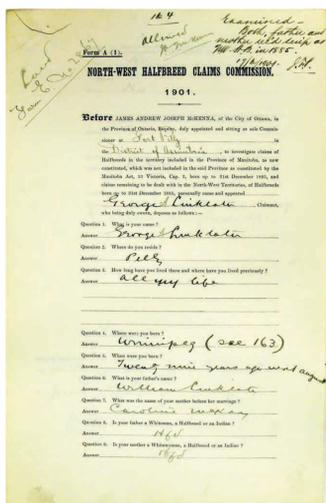 No 4
Examined —
Both father and
mother
in 1885.
allowed
Form A (1).
NORTH-WEST HALFBREED CLAIMS COMMISSION.
1901.
Before JAMES ANDREW JOSEPH McKENNA, of the City of Ottawa, in
the Province of Ontario, Esquire, duly appointed and sitting as sole Commis-
sioner at Fort Pelly in
the District of Assiniboia, to investigate claims of
Halfbreeds in the territory included in the Province of Manitoba, as now
constituted, which was not included in the said Province as constituted by the
Manitoba Act, 33 Victoria, Cap. 3, born up to 31st December 1885, and
claims remaining to be dealt with in the North-West Territories, of Halfbreeds
born up to 31st December 1885, personally came and appeared
George Linklater Claimant,
who being duly sworn, deposes as follows:—
Question 1. What is your name?
Answer George Linklater
Question 2. Where do you reside?
Answer Pelly
Question 3. How long have you lived there and where have you lived previously?
Answer all my life
Question 4. Where were you born?
Answer Winnipeg (see 163)
Question 5. When were you born?
Answer Twenty nine years ago next August
Question 6. What is your father's name?
Answer William Linklater
Question 7. What was the name of your mother before her marriage?
Answer Caroline McKay
Question 8. Is your father a Whiteman, a Halfbreed or an Indian?
Answer Hfd
Question 9. Is your mother a Whitewoman, a Halfbreed or an Indian?
Answer Hfd